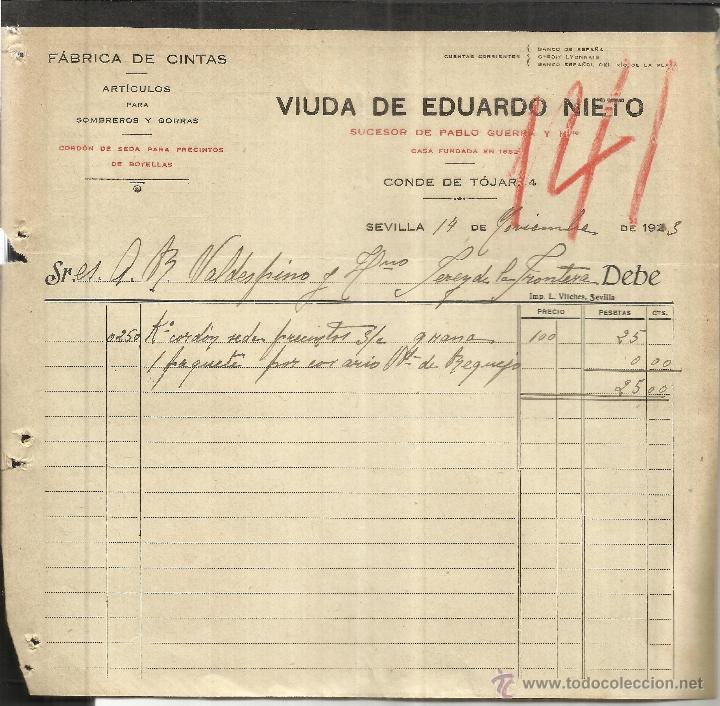 FÁBRICA DE CINTAS
ARTÍCULOS
PARA
SOMBREROS Y GORRAS
CORDÓN DE SEDA PARA PRECINTOS
DE BOTELLAS
CUENTAS CORRIENTES
BANCO DE ESPAÑA
CRÉDIT LYONNAIS
BANCO ESPAÑOL DEL RÍO DE LA PLATA
141
VIUDA DE EDUARDO NIETO
SUCESOR DE PABLO GUERRA Y H.no
CASA FUNDADA EN 1852
CONDE DE TÓJAR, 4
SEVILLA 14 DE Noviembre DE 1923
Sres. A. R. Valdespino y Hno Jerez de la Frontera Debe
Imp. L. Vilches, Sevilla
PRECIO PESETAS CTS.
0250 Kº cordón seda precintos 3/c grana 100 25
1 paquete por cosario de Requejo 0 00
25 00
www.todocoleccion.net